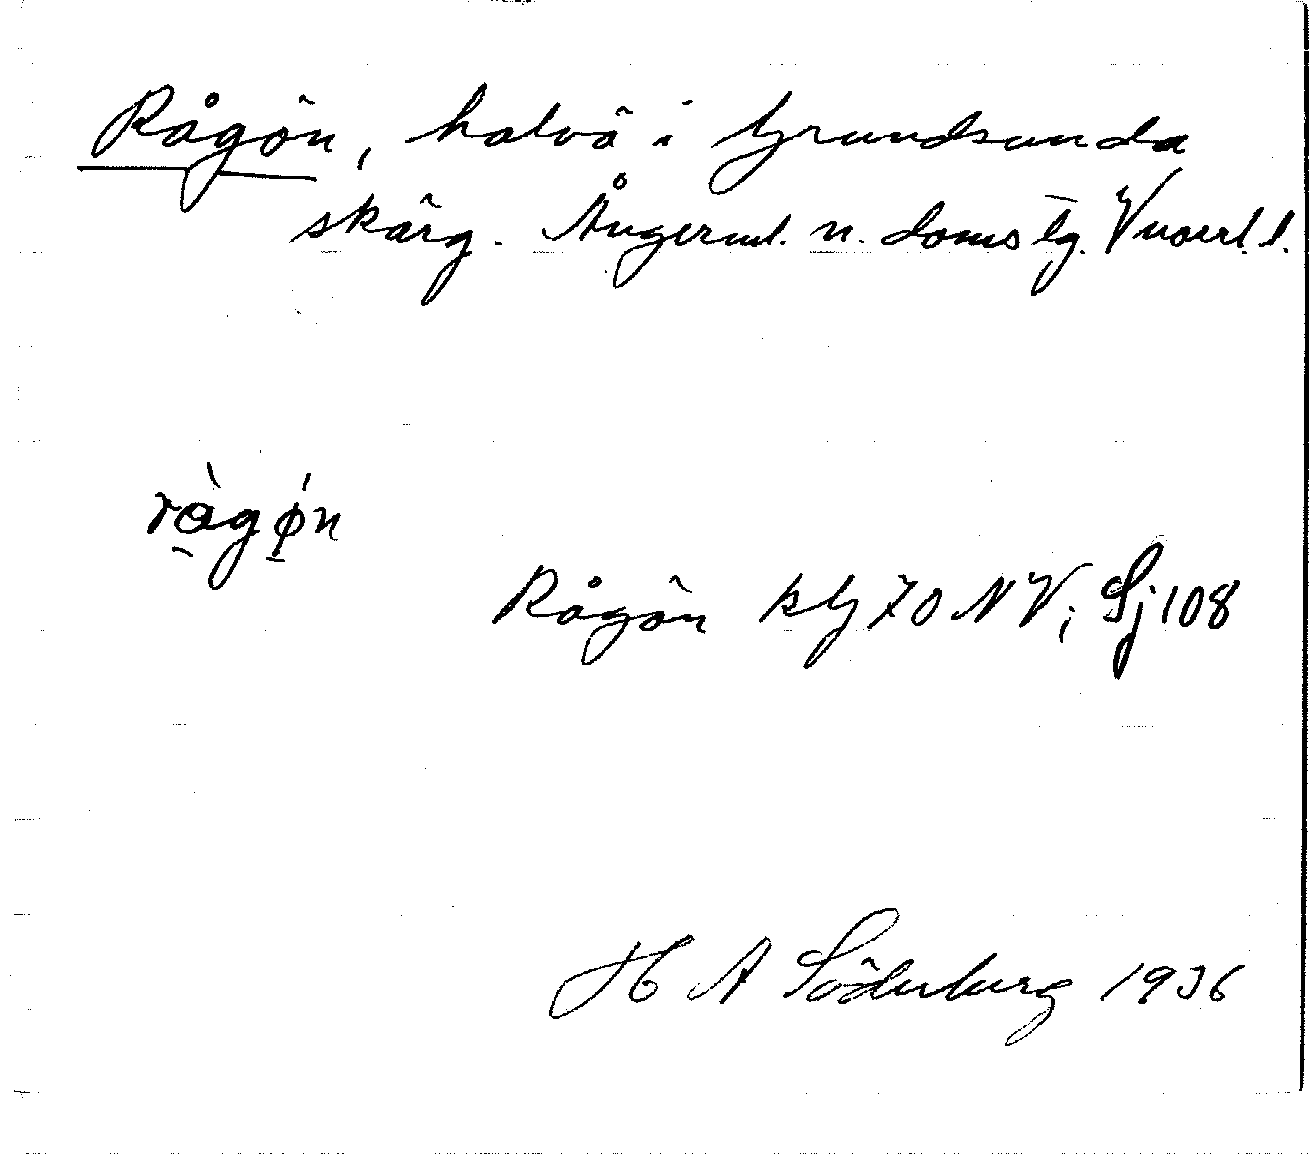 Rågön, halvö i Grundsunda
skärg. Ångerml. n. doms tg. Vnorrl. l.
ràgǿn
Rågön kbg 70 NV; Sj 108
H A Söderberg 1936